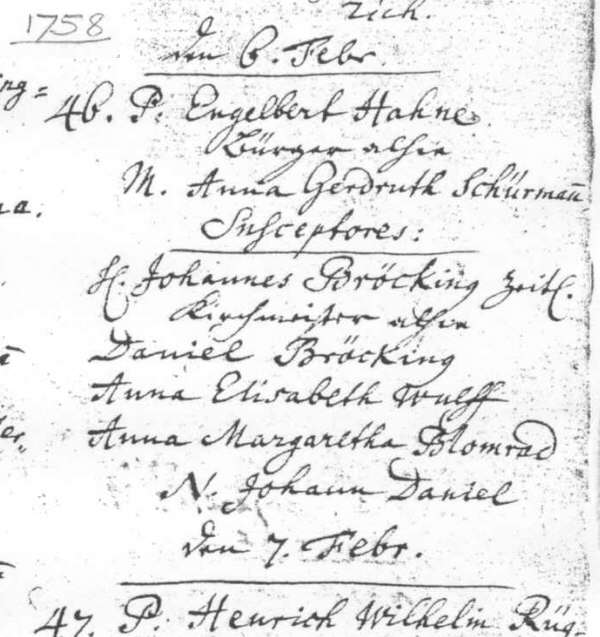 1758
rich.
den 6. Febr.
ing=
46. P. Engelbert Hahne
Bürger alhie
M. Anna Gerdruth Schürmañ
na.
Susceptores:
H. Johannes Bröcking Zeitl.
Kirchmeister alhie
Daniel Bröcking
Anna Elisabeth Wulff
Anna Margaretha Blomrad
N. Johann Daniel
den 7. Febr.
47. P. Henrich Wilhelm Rüg-